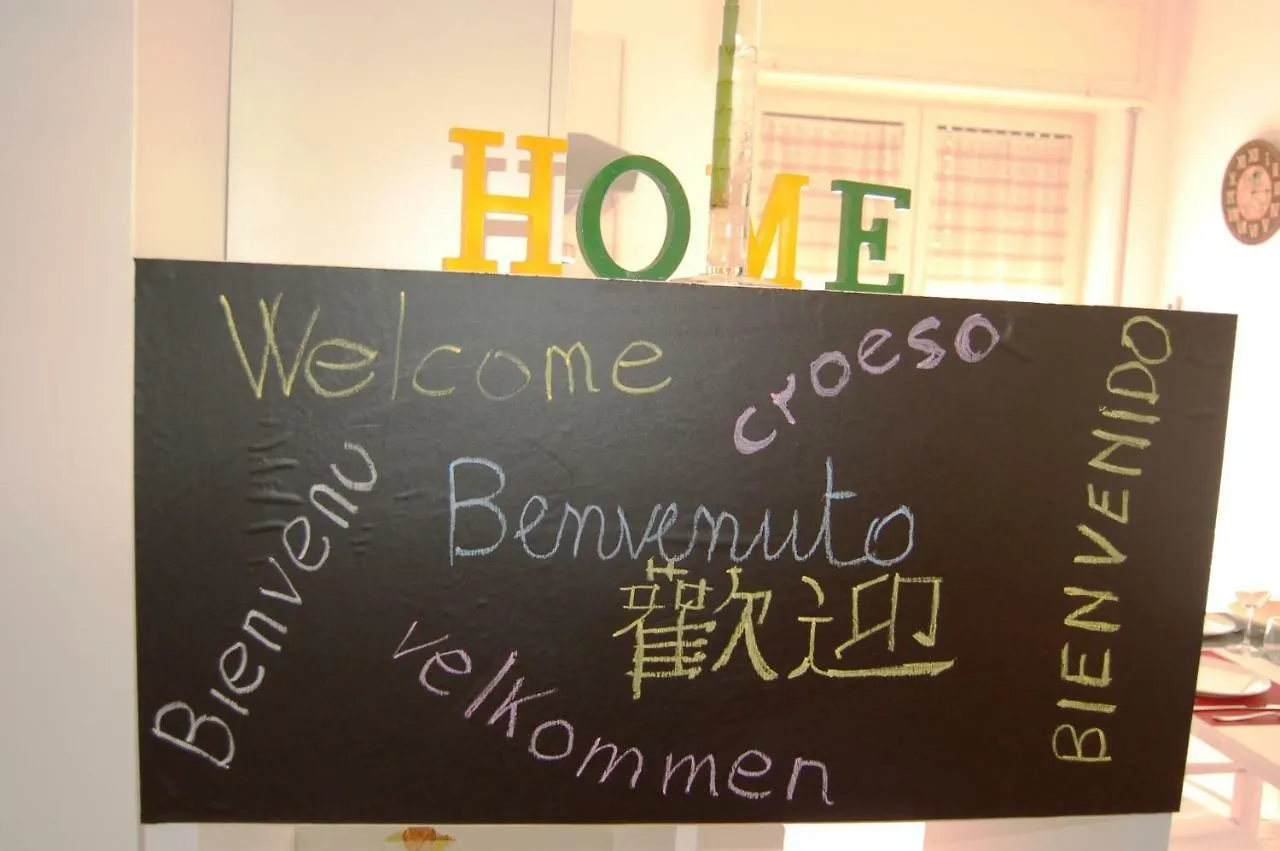 HOME
Welcome
croeso
BIENVENIDO
Bienvenu
Benvenuto
歡迎
velkommen